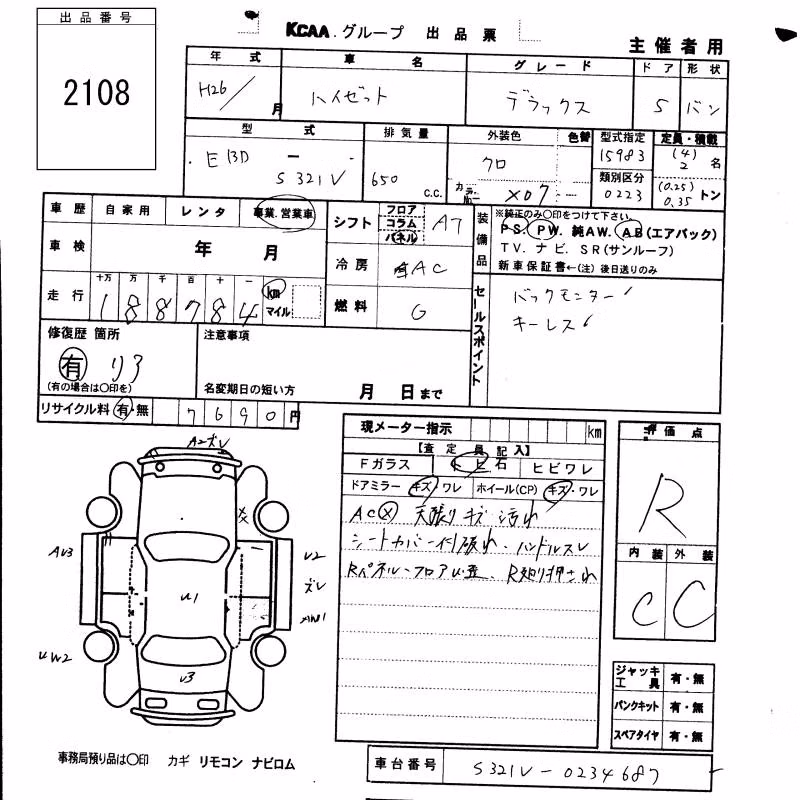 出品番号
2108
KCAA.グループ 出品票
主催者用
年式 車名 グレード ドア 形状
H26/ 月 ハイゼット デラックス 5 バン
型式 排気量 外装色 色替 型式指定 定員・積載
EBD - S321V 650 c.c. クロ カラーNo. X07 15983 (4) 2 名
類別区分
0223 (0.25) 0.35 トン
車歴 自家用 レンタ 事業.営業車
車検 年 月
走行 十万 万 千 百 十 一
188784 km マイル
シフト フロア コラム パネル AT
冷房 AC
燃料 G
装備品
※純正のみ○印をつけて下さい
PS. PW. 純AW. AB(エアバック)
TV. ナビ. SR(サンルーフ)
新車保証書←(注) 後日送りのみ
セールスポイント
バックモニター
キーレス
修復歴 箇所
有 リア
(有の場合は○印を)
注意事項
名変期日の短い方 月 日まで
リサイクル料 有・無 7690円
現メーター指示 km
【査定員記入】
Fガラス トビ石 ヒビワレ
ドアミラー キズ・ワレ ホイール(CP) キズ・ワレ
AC× 天張りキズ 汚れ
シートカバー付 破れ・ハンドルスレ
評価点
R
内装 外装
C C
AU3
UW2
U2
ズレ
U1
U3
ジャッキ 工具 有・無
パンクキット 有・無
スペアタイヤ 有・無
事務局預り品は○印 カギ リモコン ナビロム
車台番号 S321V-0234687